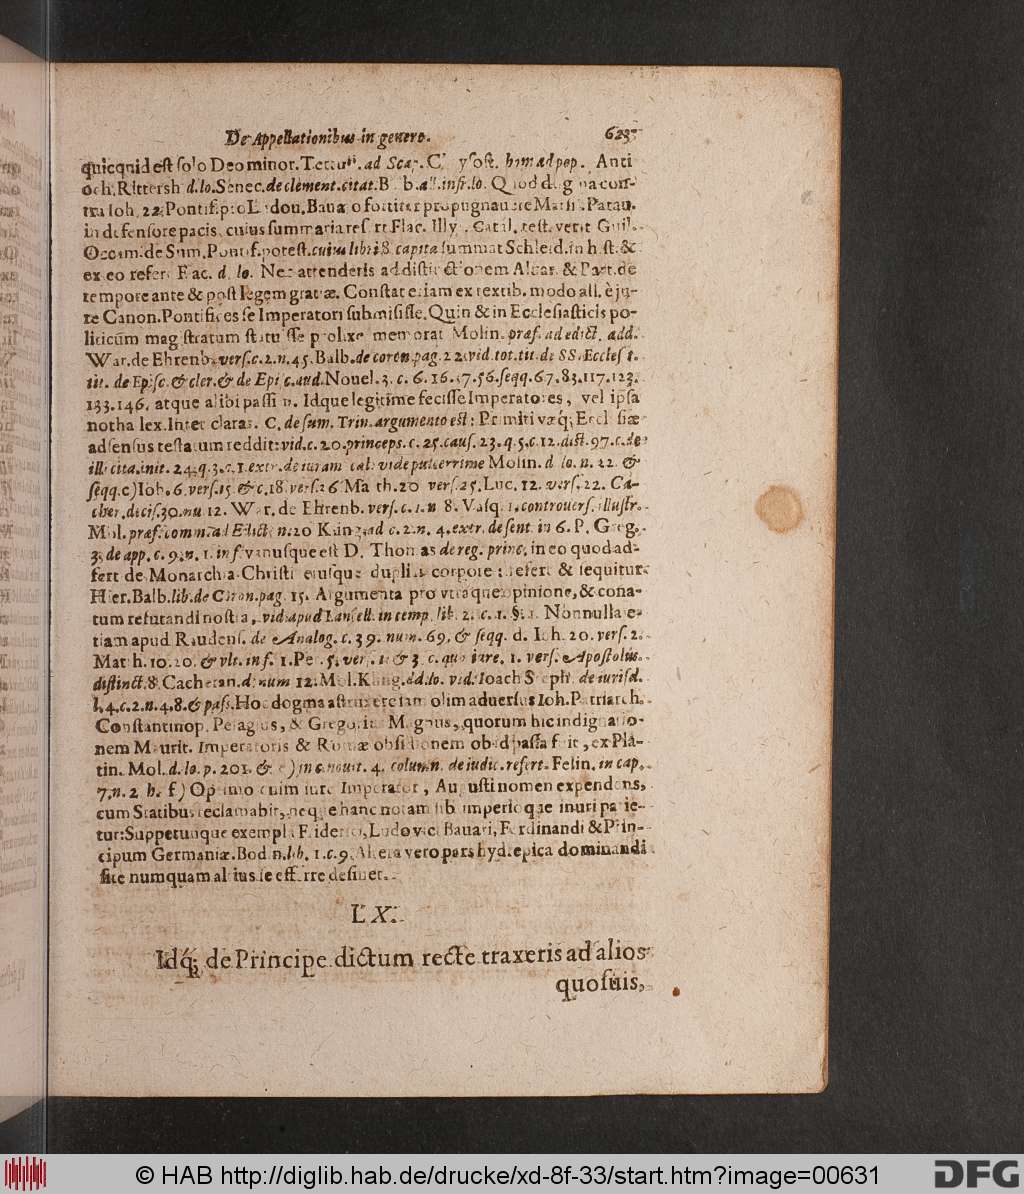 De Appellationibus in genere. 623
quicquid est solo Deo minor. ad Scap. hom ad pop. Anti
och. Rittersh d. lo. Senec. de clement. citat. all. infr. lo. Quod
tra Joh. 22. Pontif. pro Ludou. Bauaro fortiter propugnauere Patau.
in defensore pacis, cuius summaria Flac. Illyr. Catal. test. verit Guil.
Occam. de Sum. Pontif. potest. cuius libri 8. capita summat Schleid. in hist. &
ex eo refert Flac. d. lo. Nec attenderis ad distinctionem & Part. de
tempore ante & post legem gratiæ. Constat etiam ex textib. modo all. è ju-
re Canon. Pontifices se Imperatori submisisse. Quin & in Ecclesiasticis po-
liticum magistratum statuisse prolixe memorat Molin. præf. ad edict. add.
War. de Ehrenb. vers. c. 2. n. 45. Balb. de coron. pag. 22. vid. tot. tit. de SS. Eccles.
tit. de Episc. & cler. & de Epi c. aud. Nouel. 3. c. 6. 16. 57. 56. seqq. 67. 83. 117. 123.
133. 146. atque alibi passim. Idque legitime fecisse Imperatores, vel ipsa
notha lex. Inter claras. C. de sum. Trin. argumento est: Primitivæq́; Ecclesiæ
adsensus testatum reddit: vid. c. 20. princeps. c. 25. caus. 23. q. 5. c. 12. dist. 97. c. de
illicita. init. 24. q. 3. c. 1. extr. de iuram cal. vide pulcerrime Molin. d lo. n. 22. &
seqq. c) Ioh. 6. vers. 15. & c. 18. vers. 36 Matth. 20 vers. 25. Luc. 12. vers. 22. Ca-
cher. decis. 30. nu 12. War. de Ehrenb. vers. c. 1. n 8. Vasq. 1. controvers. illustr.
Mol. præf. comm. ad Edict. n. 20 ad c. 2. n. 4. extr. de sent. in 6. P. Greg.
3. de app. c. 9. n. 1. inf. vanusque est D. Thomas de reg. princ. in eo quod ad-
fert de Monarchia Christi eiusque duplici corpore: refert & sequitur
Hier. Balb. lib. de Coron. pag. 15. Argumenta pro vtraque opinione, & cona-
tum refutandi nostra, vid. apud Lancell. in temp. lib. 2. c. 1. §. 1. Nonnulla e-
tiam apud Raudens. de Analog. c. 39. num. 69. & seqq. d. Ioh. 20. vers. 2.
Matth. 10. 20. & vlt. inf. 1. Pet. 5. vers. 1. & 3. c. quo iure. 1. vers. Apostolus.
distinct. 8. Cacheran. d. num 12. Mol. Kling. dd. lo. vid. Ioach Steph. de iurisd.
l. 4. c. 2. n. 4. 8. & pass. Hoc dogma astruxere iam olim aduersus Ioh. Patriarch.
Constantinop. Pelagius, & Gregorius Magnus, quorum hic indignatio-
nem Maurit. Imperatoris & Romæ obsidionem obid passa fuit, ex Pla-
tin. Mol. d. lo. p. 201. & e) in c. nouit. 4. column. de iudic. refert. Felin. in cap.
7. n. 2 h. f) Optimo enim iure Imperator, Augusti nomen expendens,
cum Statibus reclamabit, neque hanc notam sib. imperioque inuri patie-
tur: Suppetuntque exempla Friderici, Ludovici Bauari, Ferdinandi & Prin-
cipum Germaniæ. Bodin. lib. 1. c. 9. Altera vero pars hyd. epica dominandi
site numquam altius se efferre desinet.
LX.
Idq́; de Principe dictum recte traxeris ad alios
quosuis,
© HAB http://diglib.hab.de/drucke/xd-8f-33/start.htm?image=00631
DFG